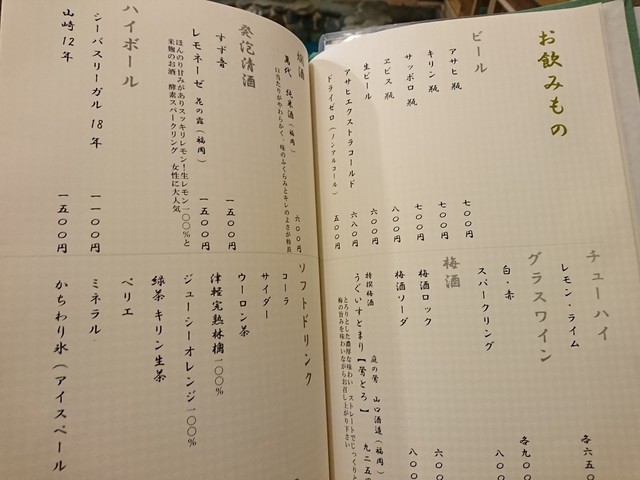 お飲みもの
ビール
アサヒ 瓶 七〇〇円
キリン 瓶 七〇〇円
サッポロ 瓶 七〇〇円
ヱビス 瓶 八〇〇円
生ビール 六〇〇円
アサヒエクストラコールド 六八〇円
ドライゼロ（ノンアルコール） 五〇〇円
チューハイ
レモン・ライム 各六五
グラスワイン
白・赤 各九〇
スパークリング 八〇
梅酒
梅酒ロック 六〇
梅酒ソーダ 八〇
特撰梅酒 庭の鶯 山口酒造（福岡）
うぐいすとまり【鶯とろ】 九二五
とろりとした濃厚な味わい ストレートでじっくりと
梅の旨みを味わいながらお召し上がり下さい
燗酒
萬代 純米酒（福岡） 六〇〇円
口当たりがやわらかく、味のふくらみとキレのよさが特長
発泡清酒
すず音 一五〇〇円
レモネーゼ 花の露（福岡） 一五〇〇円
ほんのり甘みがありスッキリレモン！生レモン一〇〇％と
米麹のお酒 酵素スパークリング 女性に大人気
ハイボール
シーバスリーガル 18年 一一〇〇円
山崎12年 一五〇〇円
ソフトドリンク
コーラ
サイダー
ウーロン茶
津軽完熟林檎一〇〇％
ジューシーオレンジ一〇〇％
緑茶 キリン生茶
ペリエ
ミネラル
かちわり氷（アイスペール